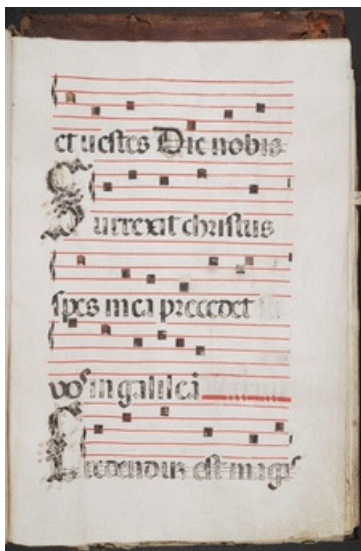 et uestes Dic nobis
Surrexit christus
spes mea precedet
vos in galilea
Credendum est magis